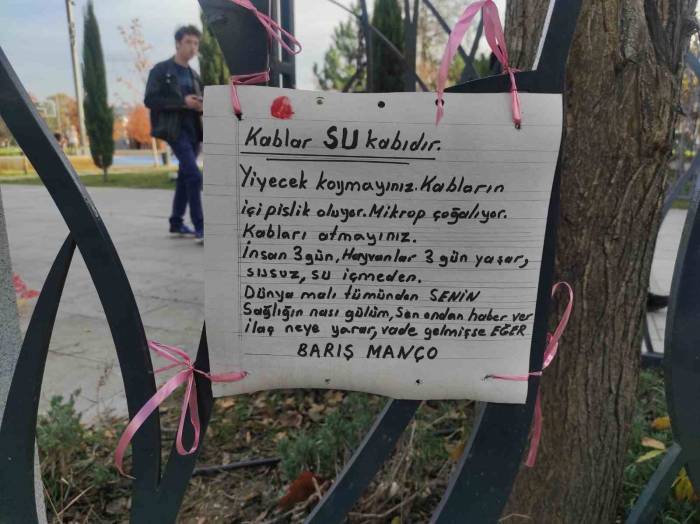 Kablar SU kabıdır.
Yiyecek koymayınız. Kabların
içi pislik oluyor. Mikrop çoğalıyor.
Kabları atmayınız.
İnsan 3 gün, Hayvanlar 3 gün yaşar,
susuz, su içmeden.
Dünya malı tümünden SENİN
Sağlığın nasıl gülüm, Sen ondan haber ver
ilaç neye yarar, vade gelmişse EĞER
BARIŞ MANÇO